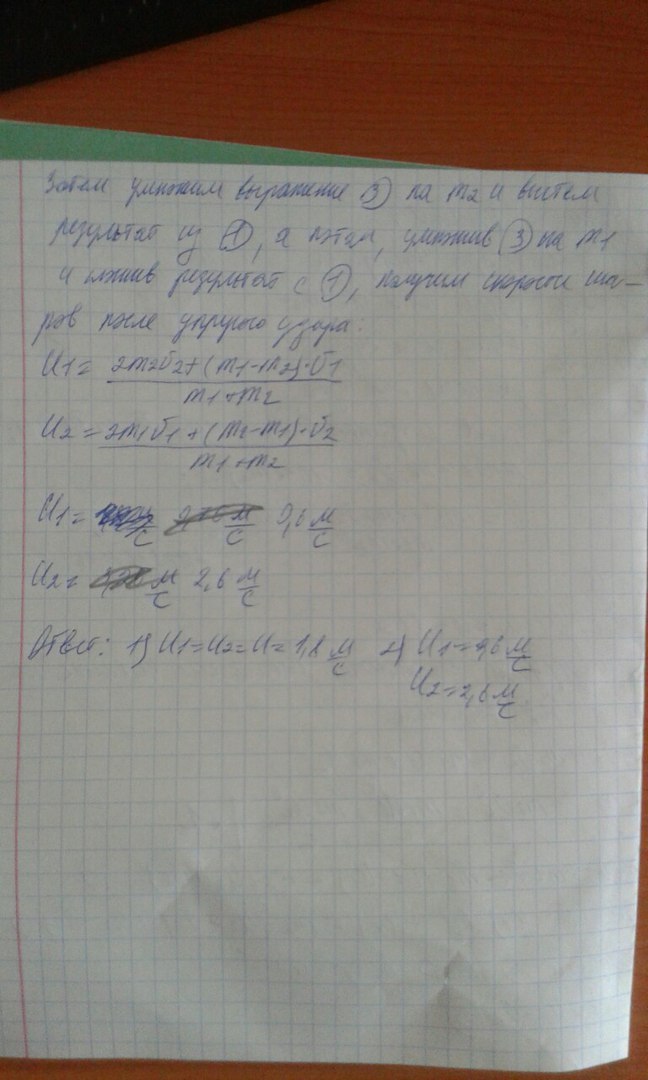 Затем умножим выражение ③ на m2 и вычтем
результат из ①, а потом, умножив ③ на m1
и сложив результат с ①, получим скорости ша-
ров после упругого удара:
U1 = (2m2υ2+(m1-m2)·υ1)/(m1+m2)
U2 = (2m1υ1+(m2-m1)·υ2)/(m1+m2)
U1 = м/с 0,6 м/с
U2 = м/с 2,6 м/с
Ответ: 1) U1=U2=U=1,8 м/с 2) U1=0,6 м/с
U2=2,6 м/с